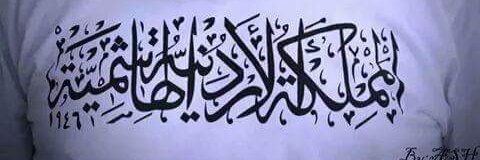 المملكة الأردنية الهاشمية
١٩٤٦
By: ASH